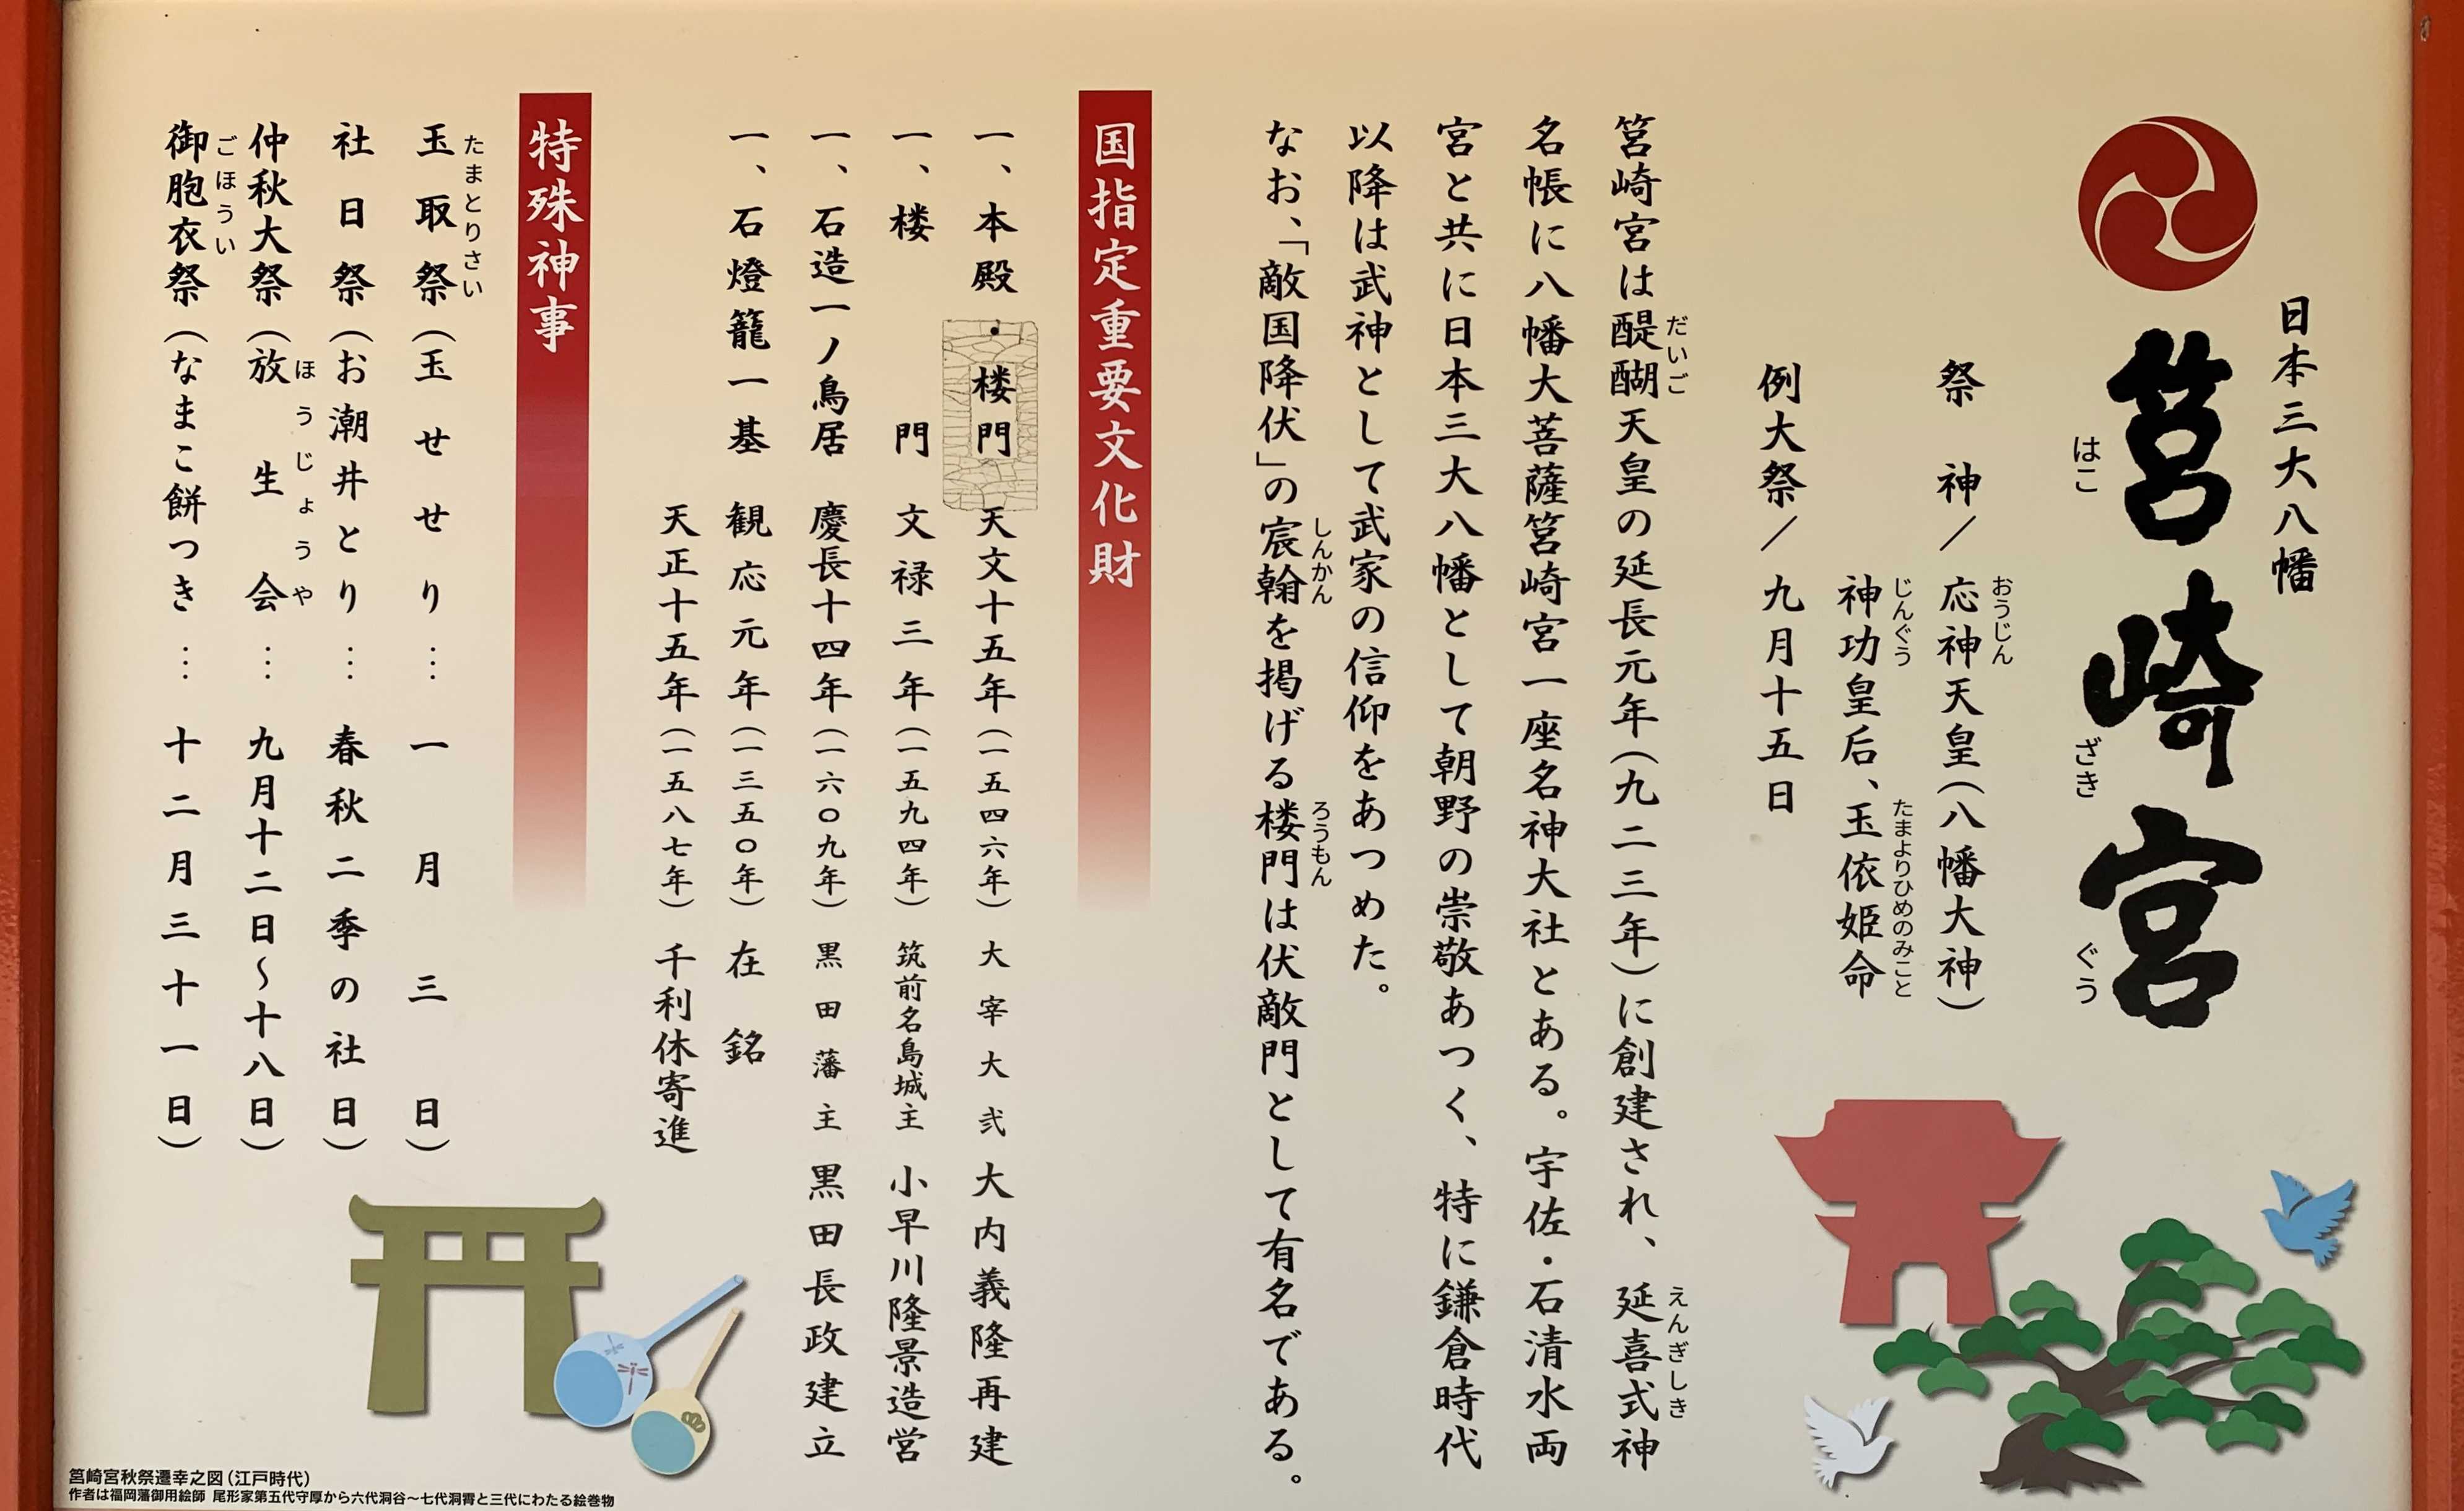 日本三大八幡
筥崎宮
はこざきぐう
祭神／応神天皇(八幡大神)
おうじん
神功皇后、玉依姫命
じんぐう たまよりひめのみこと
例大祭／九月十五日
筥崎宮は醍醐天皇の延長元年(九二三年)に創建され、延喜式神
だいご えんぎしき
名帳に八幡大菩薩筥崎宮一座名神大社とある。宇佐・石清水両
宮と共に日本三大八幡として朝野の崇敬あつく、特に鎌倉時代
以降は武神として武家の信仰をあつめた。
なお、「敵国降伏」の宸翰を掲げる楼門は伏敵門として有名である。
しんかん ろうもん
国指定重要文化財
一、本殿 楼門 天文十五年(一五四六年) 大宰大弐 大内義隆再建
一、楼門 文禄三年(一五九四年) 筑前名島城主 小早川隆景造営
一、石造一ノ鳥居 慶長十四年(一六〇九年) 黒田藩主 黒田長政建立
一、石燈籠一基 観応元年(一三五〇年) 在銘
天正十五年(一五八七年) 千利休寄進
特殊神事
玉取祭(玉せせり…一月三日)
たまとりさい
社日祭(お潮井とり…春秋二季の社日)
仲秋大祭(放生会…九月十二日〜十八日)
ほうじょうや
御胞衣祭(なまこ餅つき…十二月三十一日)
ごほうい
筥崎宮秋祭遷幸之図(江戸時代)
作者は福岡藩御用絵師 尾形家第五代守厚から六代洞谷〜七代洞霄と三代にわたる絵巻物